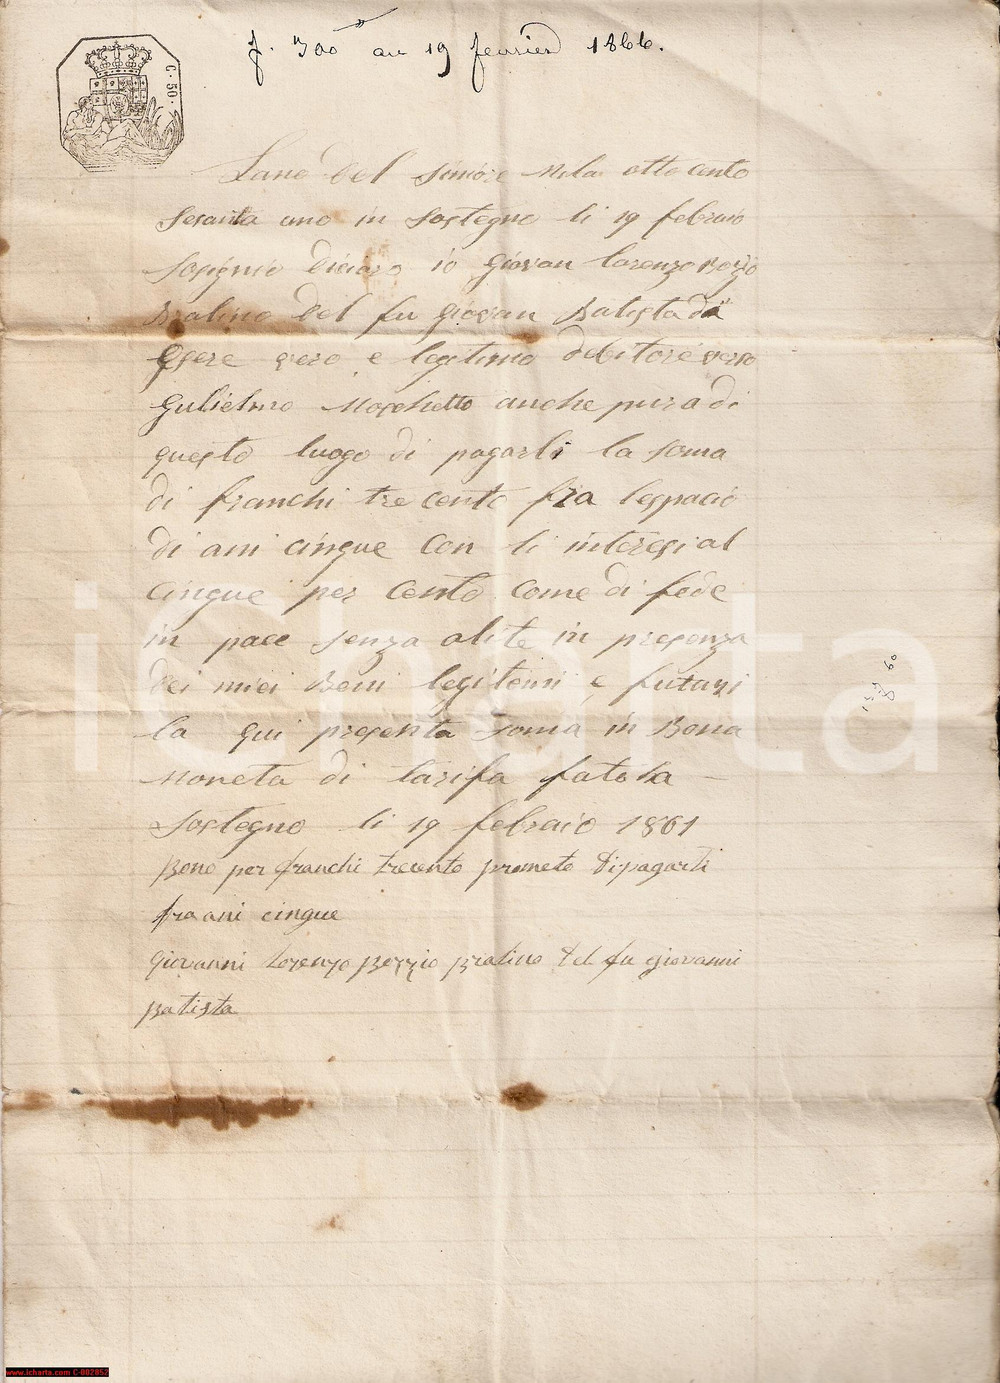 f. 300 au 19 fevrier 1866.
C. 50.
Lano del Siniore Mila otto cento
Sesanta uno in Sostegno li 19 febraio
io Giovan Lorenzo Bozio
Bralino del fu Giovan Batista di
Esere vero e legitimo debitore verso
Gulielmo Moschetto anche pura di
questo luogo di pagarli la soma
di franchi tre cento fra lespacio
di ani cinque con li interesi al
cinque per cento come di fede
in pace senza alite in presenza
dei miei Beni legitimi e futuri
la qui presenta soma in Bona
Moneta di tarifa
Sostegno li 19 febraio 1861
Bono per franchi trecento prometo di pagarli
fra ani cinque
Giovanni Lorenzo Bozzio Bralino del fu giovanni
Batista
icharta
www.icharta.com C-002852